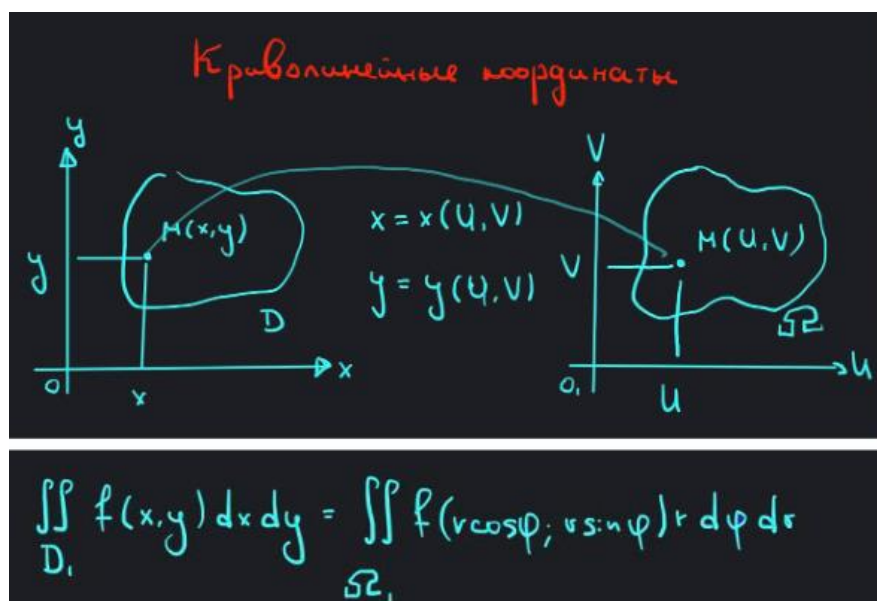 Криволинейные координаты
y
M(x,y)
y
D
0
x
x
x = x(u,v)
y = y(u,v)
V
M(u,v)
V
Ω
0₁
u
u
∬ f(x,y) dx dy = ∬ f(rcosφ; rsinφ) r dφ dr
D₁ Ω₁